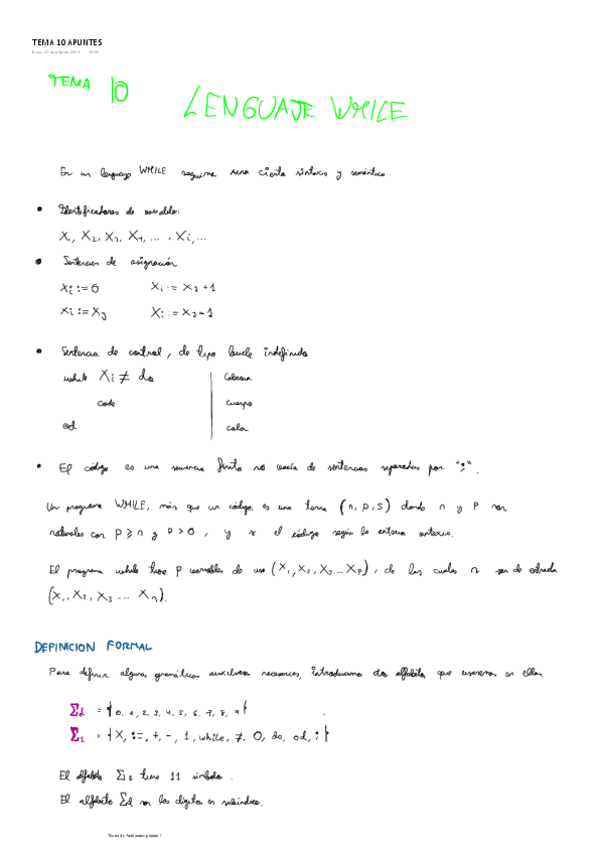 TEMA 10 APUNTES
TEMA 10
LENGUAJE WHILE
En un lenguaje WHILE seguimos una cierta sintaxis y semántica.
• Identificadores de variables:
X₁, X₂, X₃, X₄, ... , Xi, ...
• Sentencias de asignación
Xi := 0 Xi := Xj + 1
Xi := Xj Xi := Xj - 1
• Sentencia de control, de tipo bucle indefinido
while Xi ≠ do Cabecera
code cuerpo
od cola
• El código es una secuencia finita no vacía de sentencias separadas por ";".
Un programa WHILE, más que un código, es una terna (n, p, s) donde n y p son
naturales con p ≥ n y p > 0, y s el código según la anterior sintaxis.
El programa while tiene p variables de uso (X₁, X₂, X₃ ... Xp), de las cuales n son de entrada
(X₁, X₂, X₃ ... Xn).
DEFINICION FORMAL
Para definir algunas gramáticas auxiliares necesarias, introducimos dos alfabetos que usaremos en ellas
Σd = {0, 1, 2, 3, 4, 5, 6, 7, 8, 9}
Σ₁ = {X, :=, +, -, 1, while, ≠, 0, do, od, ;}
El alfabeto Σ₁ tiene 11 símbolos.
El alfabeto Σd son los dígitos en subíndice.